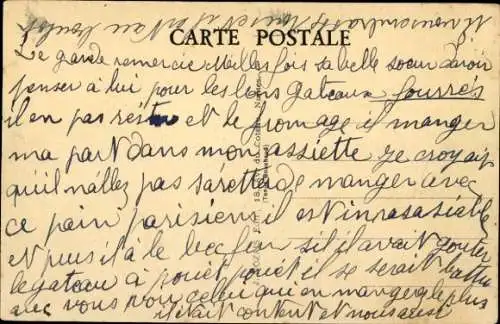 CARTE POSTALE
Le garde remercie Milles fois sa belle soeur davoir
penser à lui pour les bons gateaux fourrés
il en pas resté et le fromage il manger
ma part dans mon assiette je croyais
qu'il n'allez pas s'arêter de manger avec
ce pain parisiens il est inrasasiable
et puis il à le bec fin si il avait gouter
le gateau à pouet pouet il se serait battu
avec vous pour celui qui en mange le plus
il était content et nous aussi